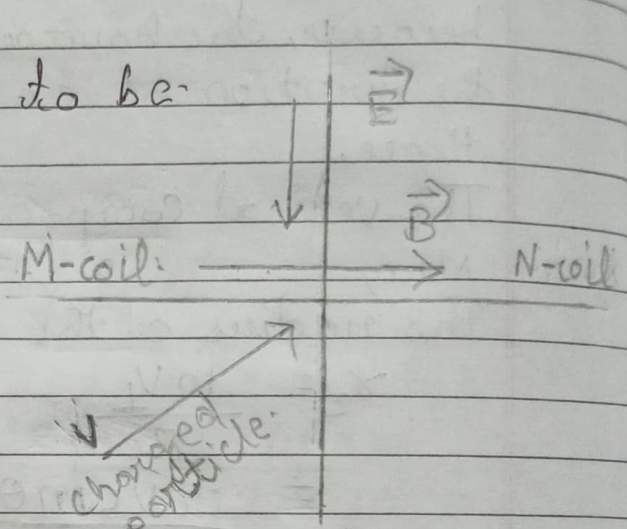 to be.
E
B
M-coil. N-coil
V
charged
particle.